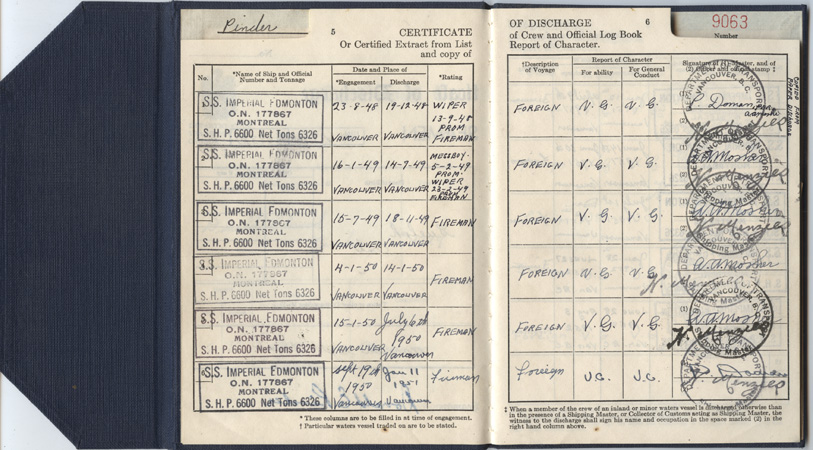 Pinder
5
CERTIFICATE
Or Certified Extract from List
and copy of
No.
*Name of Ship and Official
Number and Tonnage
Date and Place of
*Engagement
Discharge
*Rating
S.S. IMPERIAL EDMONTON
O.N. 177867
MONTREAL
S. H. P. 6600 Net Tons 6326
23-8-48
19-12-48
VANCOUVER
VANCOUVER
WIPER
13-9-48
PROM
FIREMAN
S.S. IMPERIAL EDMONTON
O.N. 177867
MONTREAL
S. H. P. 6600 Net Tons 6326
16-1-49
14-7-49
VANCOUVER
VANCOUVER
MESSBOY
5-2-49
PROM
WIPER
FIREMAN
S.S. IMPERIAL EDMONTON
O.N. 177867
MONTREAL
S. H. P. 6600 Net Tons 6326
15-7-49
18-11-49
VANCOUVER
VANCOUVER
FIREMAN
S.S. IMPERIAL EDMONTON
O.N. 177867
MONTREAL
S. H. P. 6600 Net Tons 6326
4-1-50
14-1-50
VANCOUVER
VANCOUVER
FIREMAN
S.S. IMPERIAL EDMONTON
O.N. 177867
MONTREAL
S. H. P. 6600 Net Tons 6326
15-1-50
July 6th
1950
VANCOUVER
Vancouver
FIREMAN
S.S. IMPERIAL EDMONTON
O.N. 177867
MONTREAL
S. H. P. 6600 Net Tons 6326
Sept 19th
1950
Jan 11
1951
Vancouver
Vancouver
Fireman
* These columns are to be filled in at time of engagement.
† Particular waters vessel traded on are to be stated.
OF DISCHARGE
6
9063
Number
of Crew and Official Log Book
Report of Character.
†Description
of Voyage
Report of Character
For ability
For General
Conduct
Signature of Master, and of
FOREIGN
V. G.
V. G.
FOREIGN
V. G.
V. G.
FOREIGN
V. G.
V. G.
FOREIGN
V. G.
V. G.
FOREIGN
V. G.
V. G.
Foreign
V.G.
V.G.
‡ When a member of the crew of an inland or minor waters vessel is discharged otherwise than
in the presence of a Shipping Master, or Collector of Customs acting as Shipping Master, the
witness to the discharge shall sign his name and occupation in the space marked (2) in the
right hand column above.